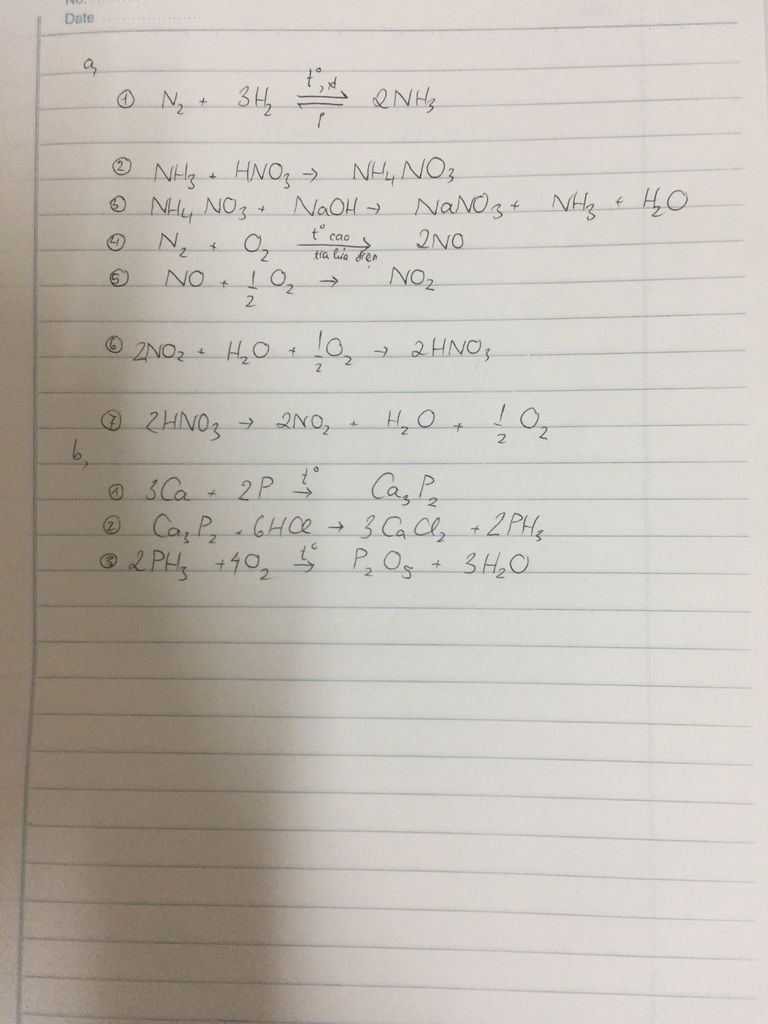 No. ..............
Date ..............................
a,
① N₂ + 3H₂ ⇌ (t°, xt / p) 2NH₃
② NH₃ + HNO₃ → NH₄NO₃
③ NH₄NO₃ + NaOH → NaNO₃ + NH₃ + H₂O
④ N₂ + O₂ → (t° cao / tia lửa điện) 2NO
⑤ NO + 1/2 O₂ → NO₂
⑥ 2NO₂ + H₂O + 1/2 O₂ → 2HNO₃
⑦ 2HNO₃ → 2NO₂ + H₂O + 1/2 O₂
b,
① 3Ca + 2P →(t°) Ca₃P₂
② Ca₃P₂ + 6HCl → 3CaCl₂ + 2PH₃
③ 2PH₃ + 4O₂ →(t°) P₂O₅ + 3H₂O